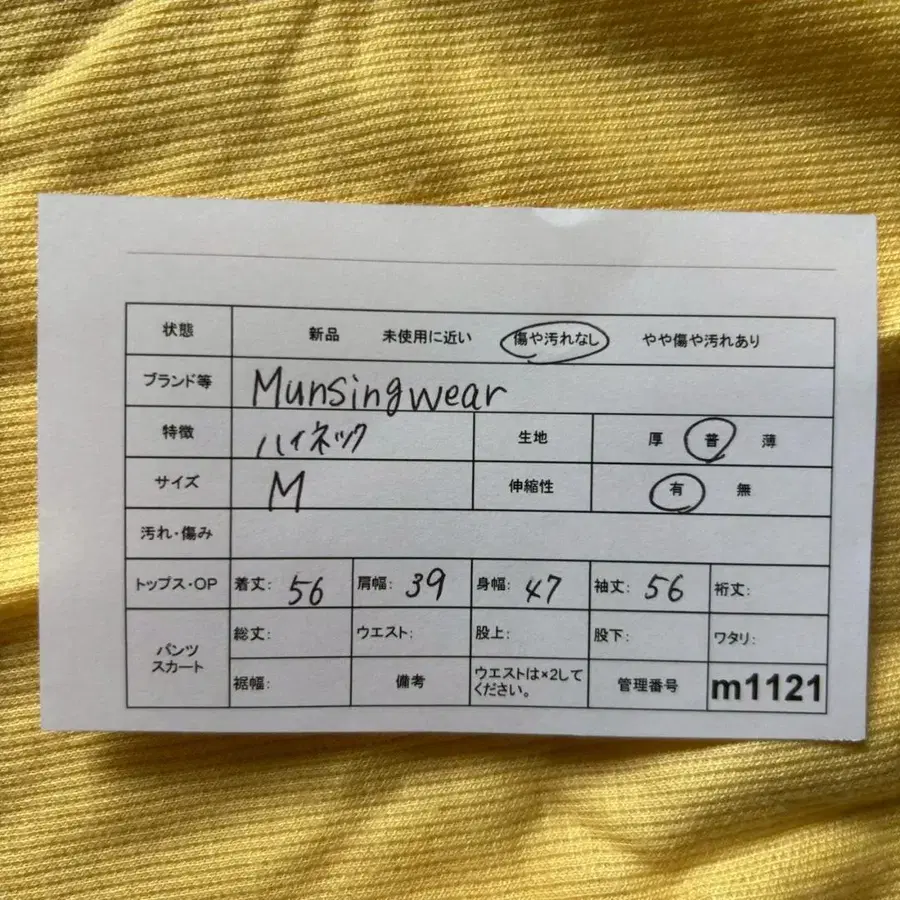 状態 新品 未使用に近い 傷や汚れなし やや傷や汚れあり
ブランド等 Munsingwear
特徴 ハイネック 生地 厚 普 薄
サイズ M 伸縮性 有 無
汚れ・傷み
トップス・OP 着丈: 56 肩幅: 39 身幅: 47 袖丈: 56 裄丈:
パンツ
スカート
総丈: ウエスト: 股上: 股下: ワタリ:
裾幅: 備考 ウエストは×2して
ください。 管理番号 m1121